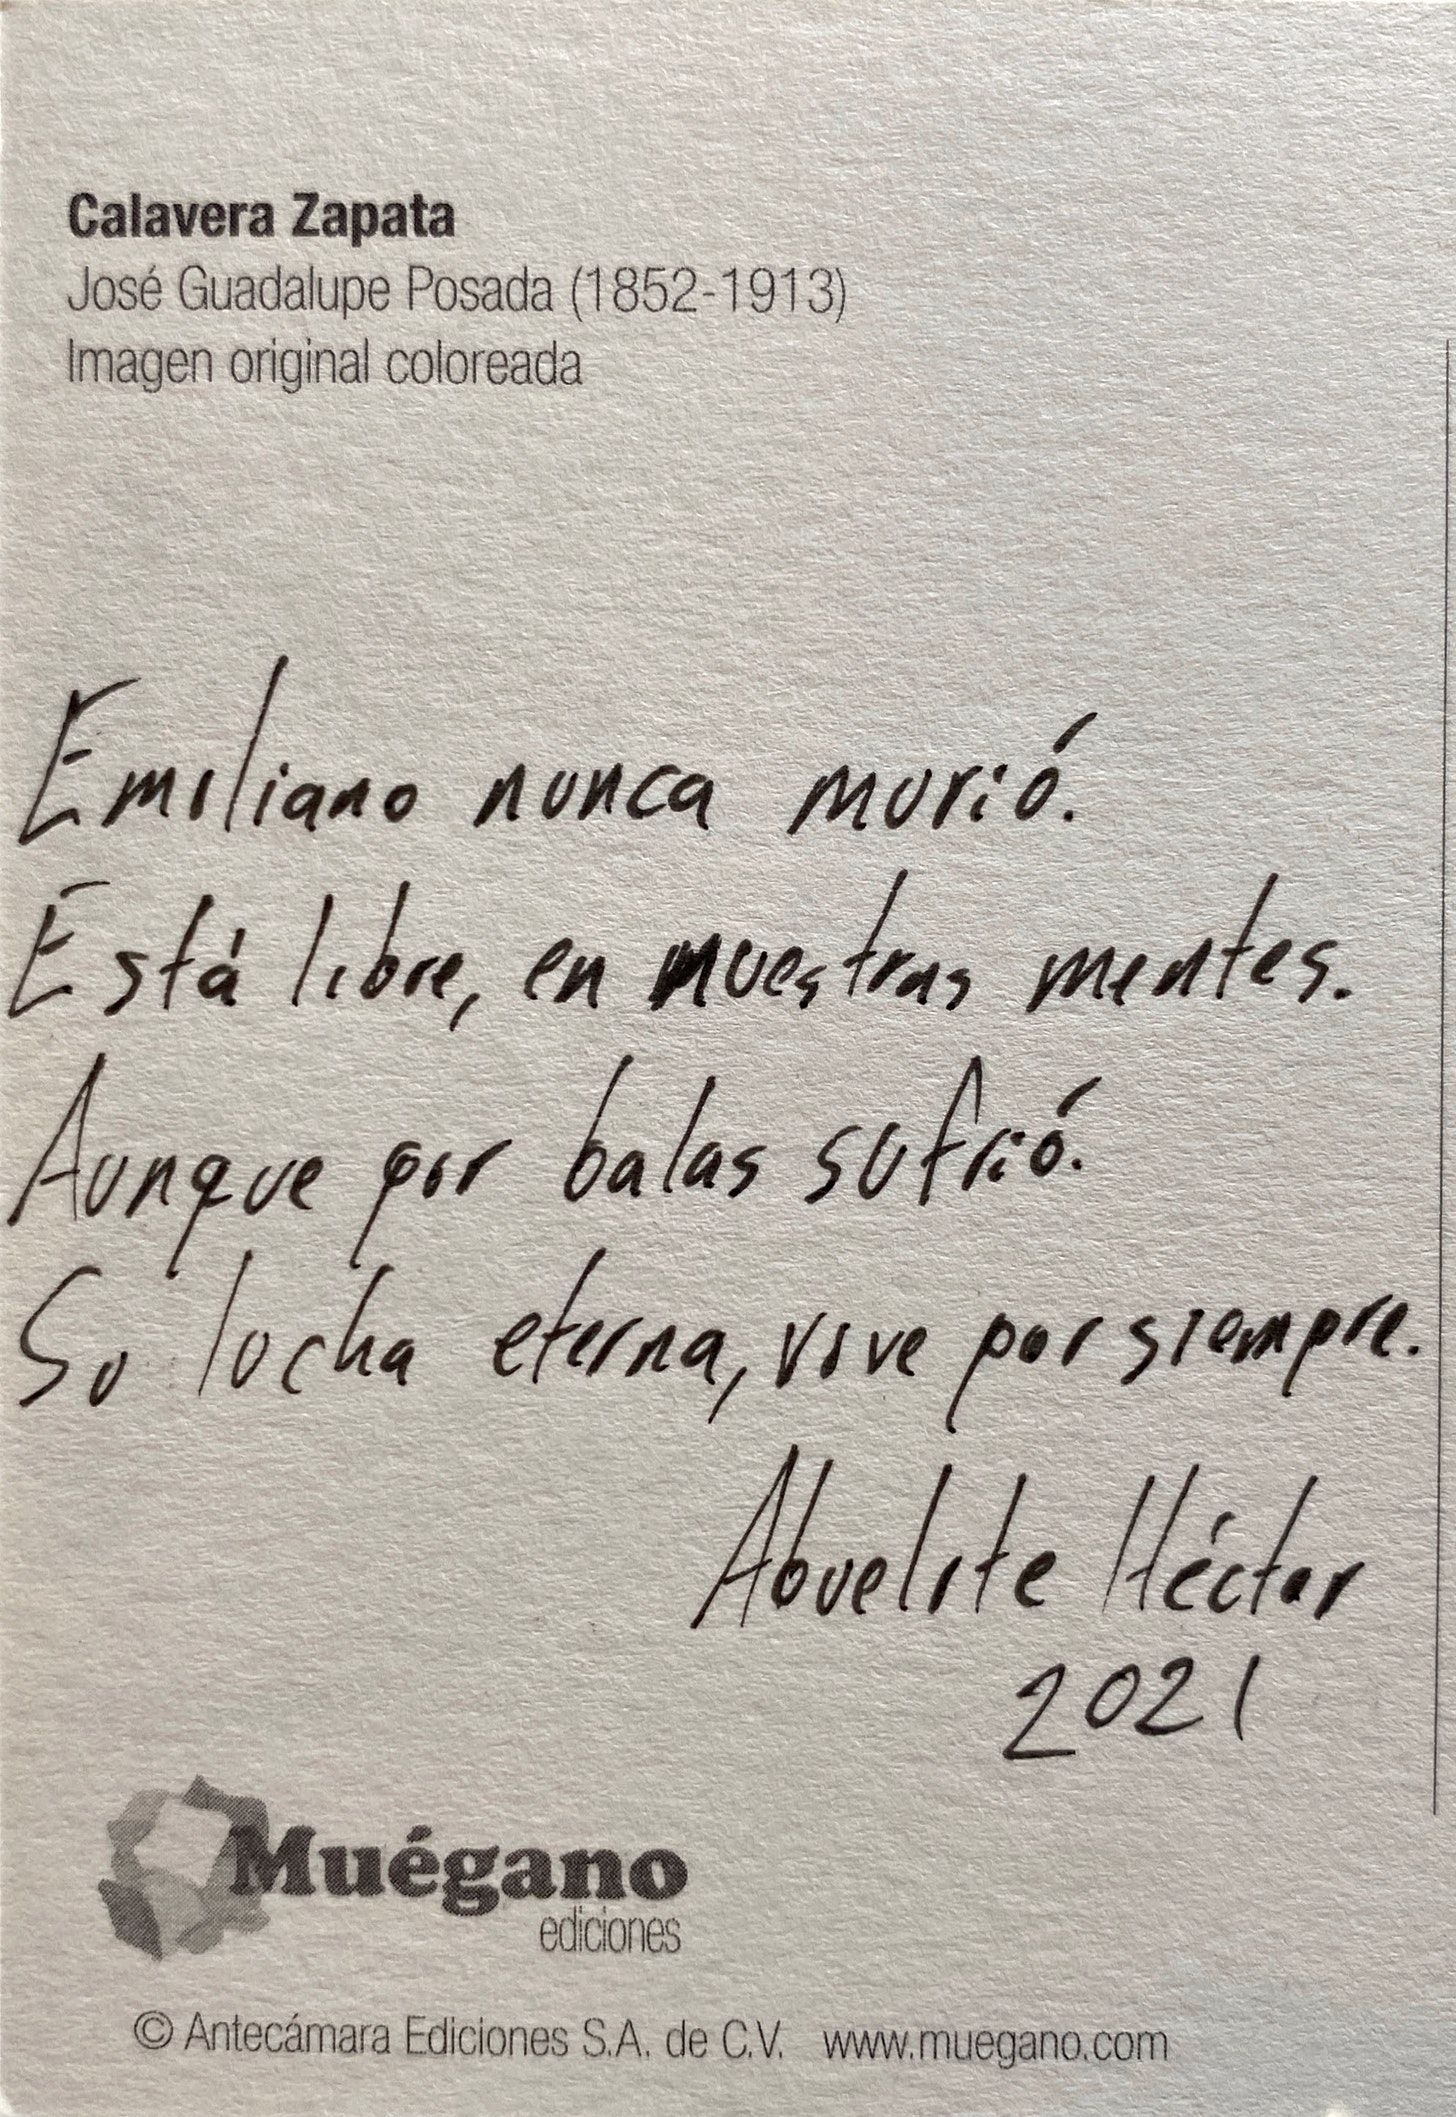 Calavera Zapata
José Guadalupe Posada (1852-1913)
Imagen original coloreada
Emiliano nunca murió.
Está libre, en nuestras mentes.
Aunque por balas sufrió.
Su lucha eterna, vive por siempre.
Abuelite Héctor
2021
Muégano
ediciones
© Antecámara Ediciones S.A. de C.V. www.muegano.com